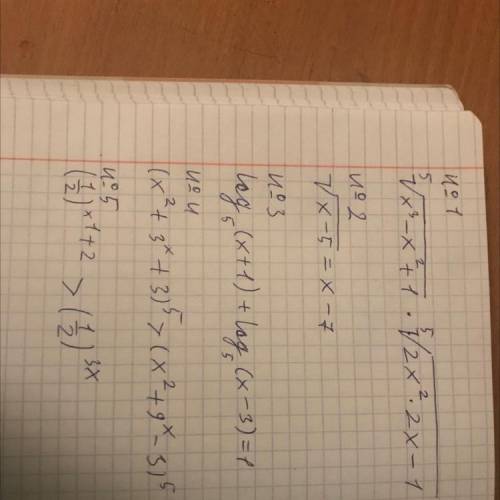 №1
⁵√x³-x²+1 · ⁵√2x²·2x-1
№2
√x-5 = x-7
№3
log₅(x+1)+log₅(x-3)=1
№4
(x²+3ˣ+3)⁵ > (x²+9ˣ-3)⁵
№5
(1/2)ˣ¹⁺² > (1/2)³ˣ